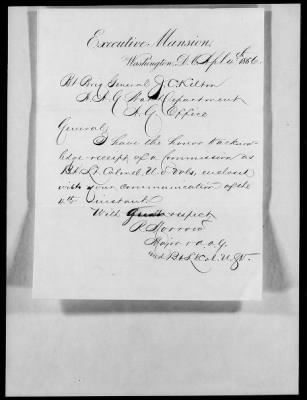 Executive Mansion,
Washington, D.C. Sept. 4th 1866.
Bt Brig General J. C. Kelton
A. A. G. War Department
A. G. Office
General,
I have the honor to acknow-
ledge receipt of a Commission as
Bvt Lt. Colonel, U.S. Vols, enclosed
with your communication of the
4th Instant.
With respect
R. Morrow
Major & A. A. G.
and Bt Lt Col. U.S.V.